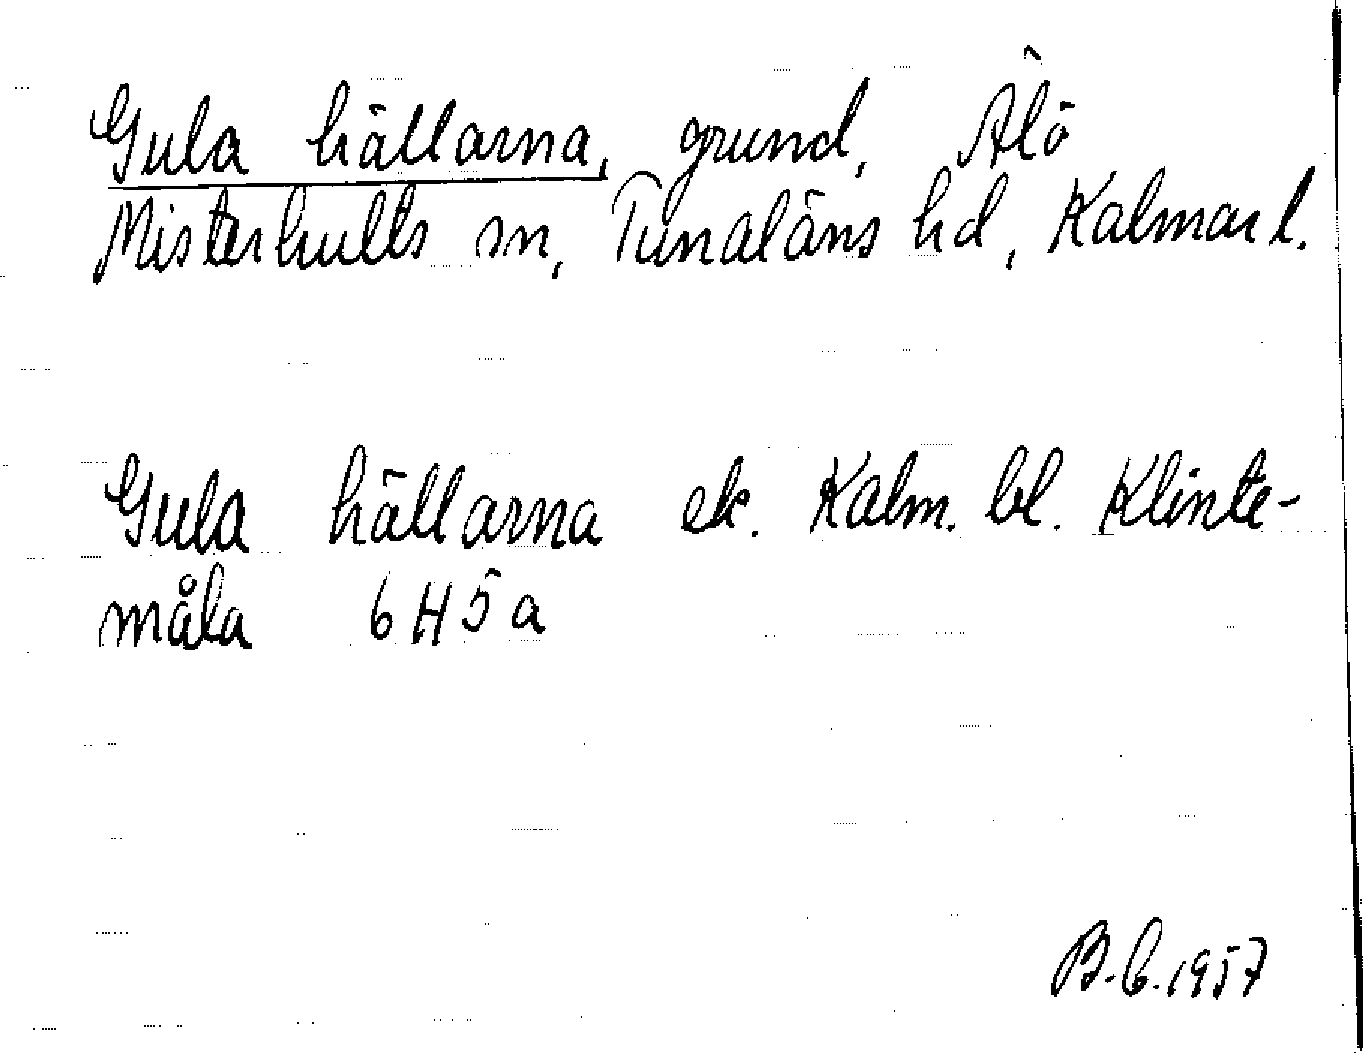 Gula hällarna, grund, Älö
Misterhults sn, Tunaläns hd, Kalmar l.
Gula hällarna ek. Kalm. bl. Klinte-
måla 6H5a
B.C. 1957